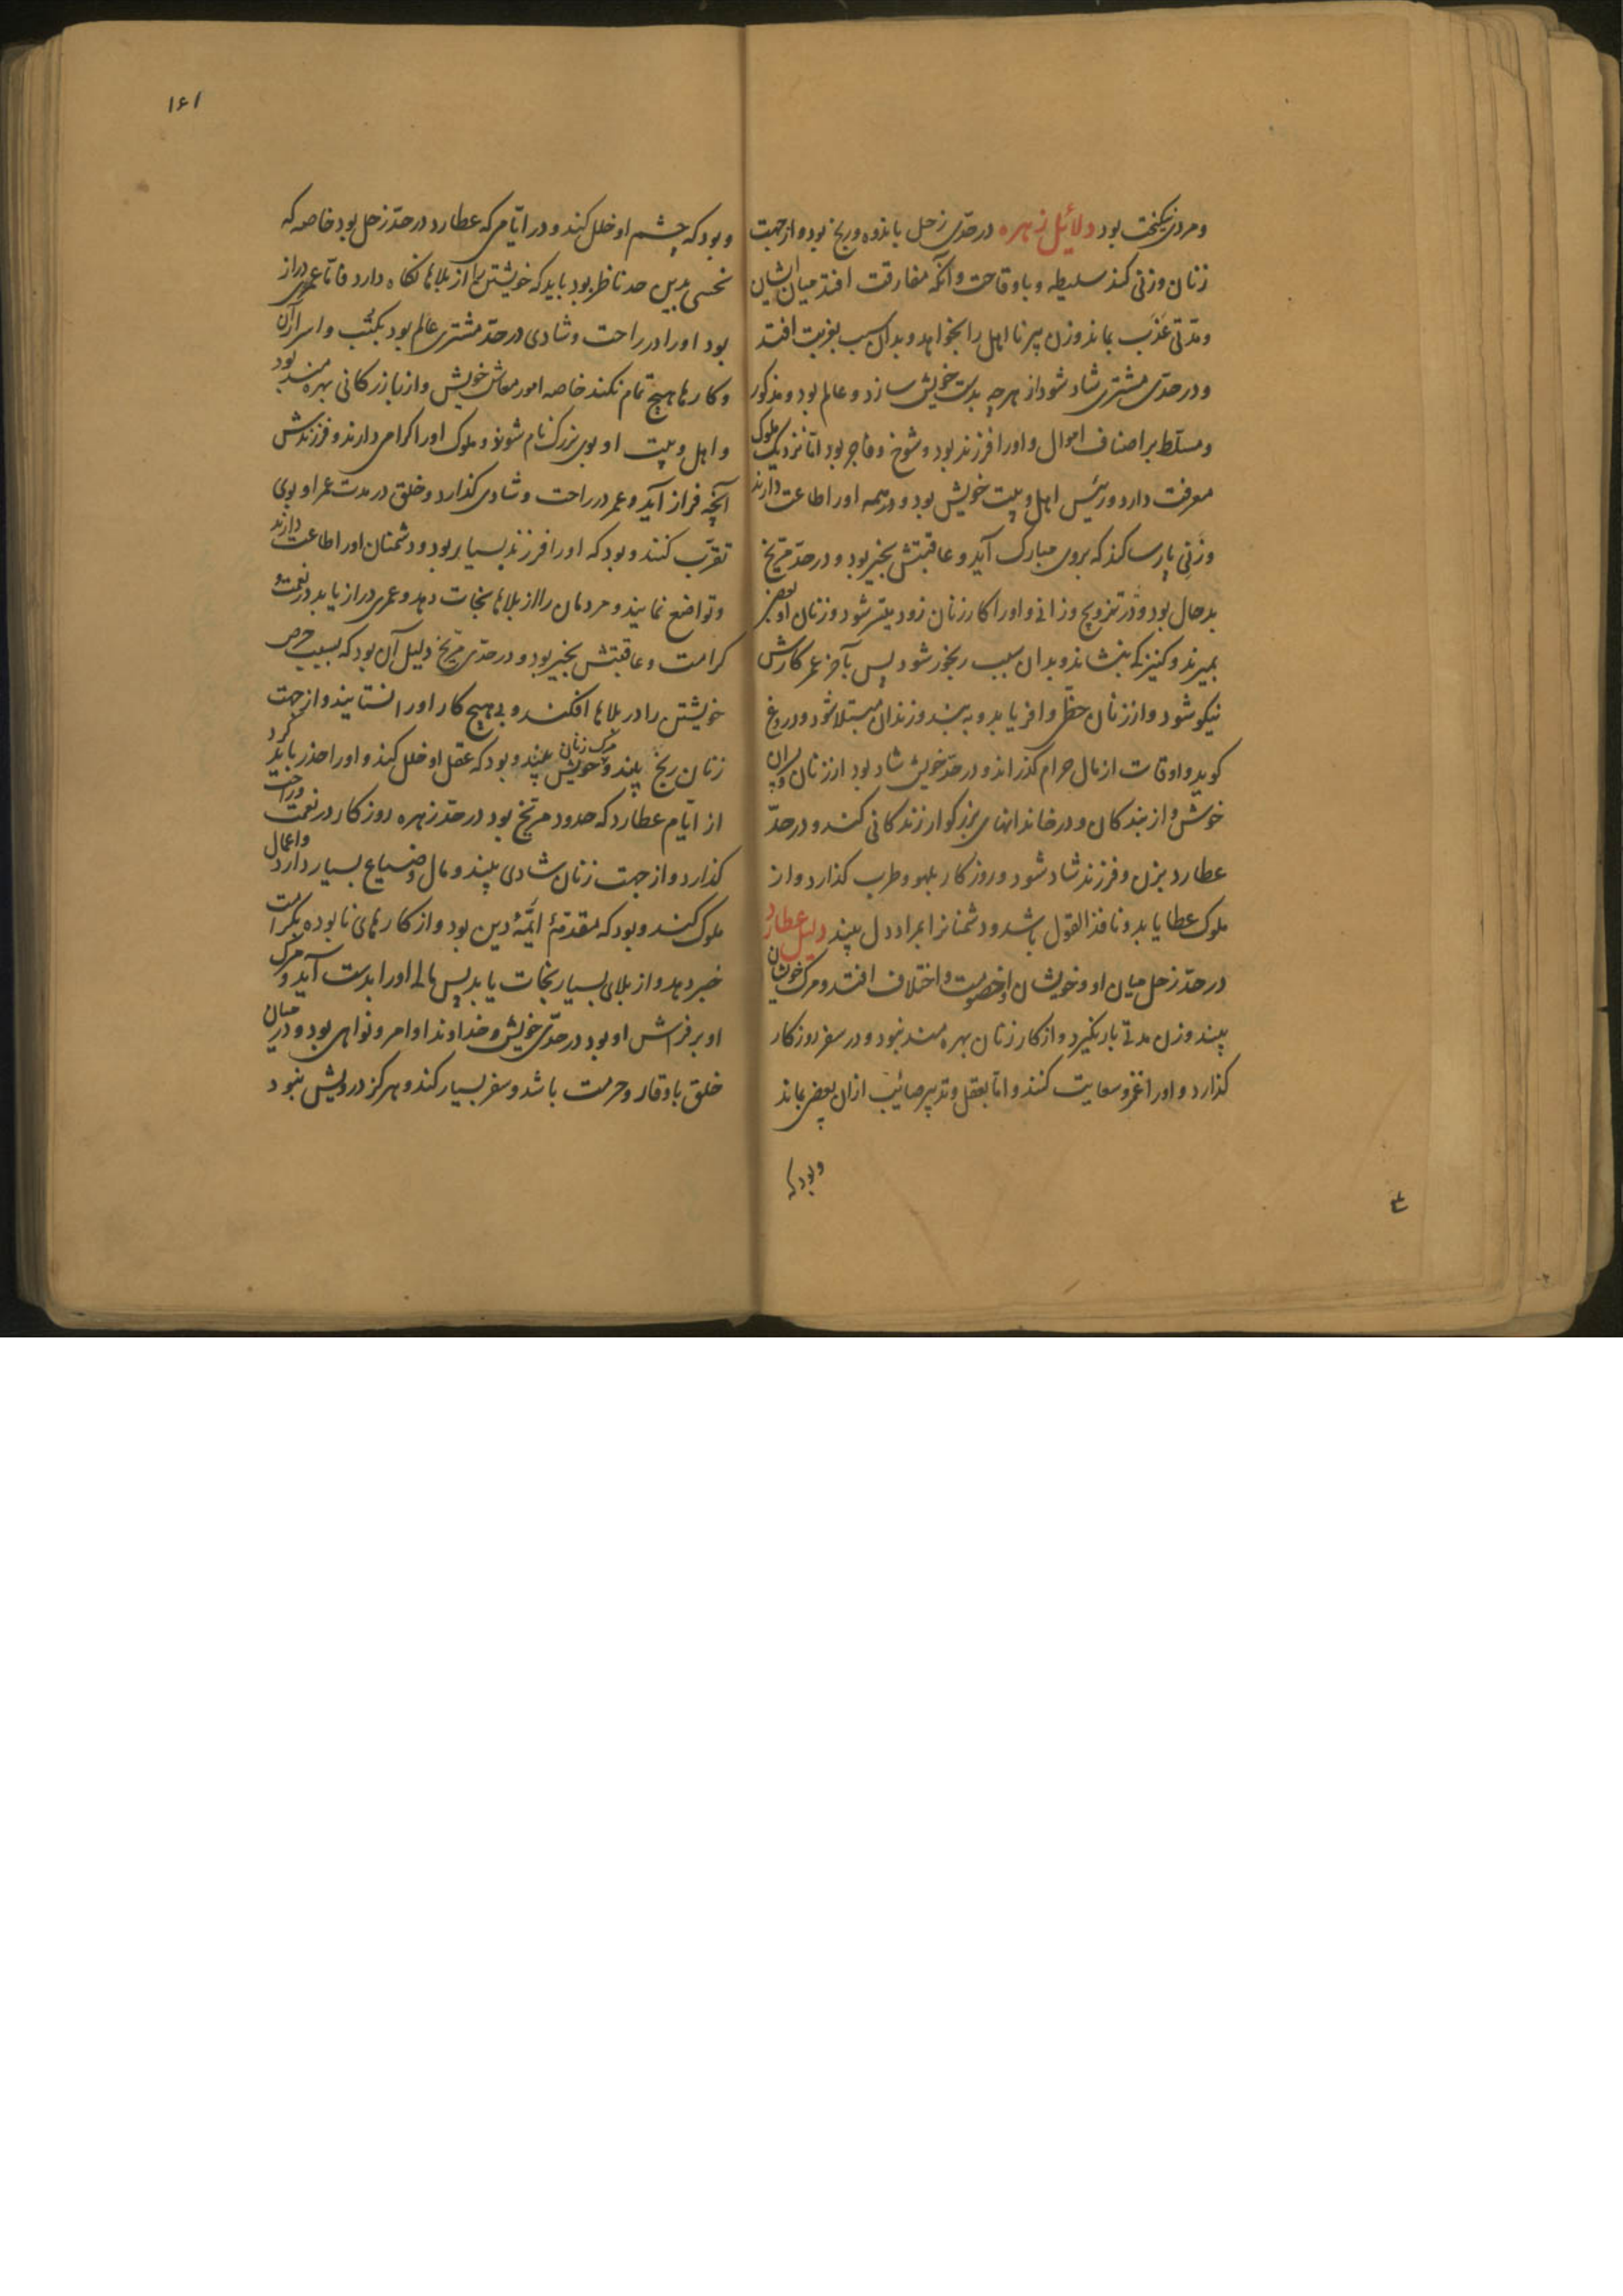 ومردی نیکبخت بود دلائل زهره در حدّی زحل باندوه ورنج بود واز جهت
زنان وزنی کند سلیطه وباوقاحت وآنکه مفارقت افتد میان ایشان
ومدّتی عَذَب بماند وزن پیر نا اهل را بخواهد وبدان سبب بغربت افتد
ودر حدّی مشتری شاد شود از هر چه بدست خویش سازد وعالم بود ومذکور
ومسلّط بر اصناف اموال واورا فرزند بود وشوخ وفاجر بود امّا نزدیک ملوک
معرفت دارد ورئیس اهل وبیت خویش بود ودر همه اورا طاعت دارند
وزنی پارسا کند که بروی مبارک آید وعاقبتش بخیر بود ودر حدّ مرّیخ
بدحال بود ودر تزویج وزانی واورا کار زنان زود میسّر شود وزنان او بعضی
بمیرند وکنیزکی بنشاند وبدان سبب رنجور شود پس بآخر عمر کارش
نیکو شود واز زنان حظّ وافر یابد وبه بند وزندان مبتلا شود ودروغ
کوید واوقات از مال حرام کذراند ودر حدّ خویش شاد بود از زنان وپسران
خوش واز بندکان ودر خاندانهای بزرکوار زندکانی کند ودر حدّ
عطارد بزن وفرزند شاد شود وروزکار بلهو وطرب کذارد واز
ملوک عطا یابد ونافذ القول باشد ودشمنانرا بمراد دل بیند دلیل عطارد
در حدّ زحل میان او وخویشان او خصومت واختلاف افتد ومرک خویشان
بیند وزن مدتی بار نکیرد واز کار زنان بهره مند نبود ودر سفر روزکار
کذارد واورا غمز وسعایت کنند وامّا بعقل وتدبیر صائب ازان بعضی بماند
وبود که
۱۶۱
وبود که چشم او خلل کند ودر ایّامی که عطارد در حدّ زحل بود خاصه که
نحسی بدین حد ناظر بود باید که خویشتن را از بلاها نکاه دارد فامّا عمری دراز
بود اورا در راحت وشادی در حدّ مشتری عالم بود بکتُب واسرار آن
وکارها هیچ تمام نکند خاصه امور معاش خویش واز بازرکانی بهره مند بود
واهل وبیت او بوی بزرک نام شوند وملوک اورا کرامی دارند وفرزندش
آنچه فراز آید وعمر در راحت وشادی کذارد وخلق در مدت عمر او بوی
تقرّب کنند وبود که اورا فرزند بسیار بود ودشمنان اورا طاعت دارند
وتواضع نمایند ومردمان را از بلاها نجات دهد وعمری دراز یابد در نعمت و
کرامت وعاقبتش بخیر بود ودر حدّی مرّیخ دلیل آن بود که بسبب حرص
خویشتن را در بلاها افکند وبهیچ کار اورا نستایند واز جهت
زنان رنج بیند ومرک زنان خویش بیند وبود که عقل او خلل کند واورا حذر باید کرد
از ایّام عطارد که حدود مرّیخ بود در حدّ زهره روزکار در نعمت وراحت
کذارد واز جهت زنان شادی بیند ومال وضیاع بسیار دارد واعمال
ملوک کند وبود که مقدمهٔ ائمّهٔ دین بود واز کارهای نابوده بکرامت
خبر دهد واز بلای بسیار نجات یابد پس مالی اورا بدست آید ومرک
او بر فراش او بود در حدّی خویش وخداوند اوامر ونواهی بود ودر میان
خلق باوقار وحرمت باشد وسفر بسیار کند وهرکز درویش نبود